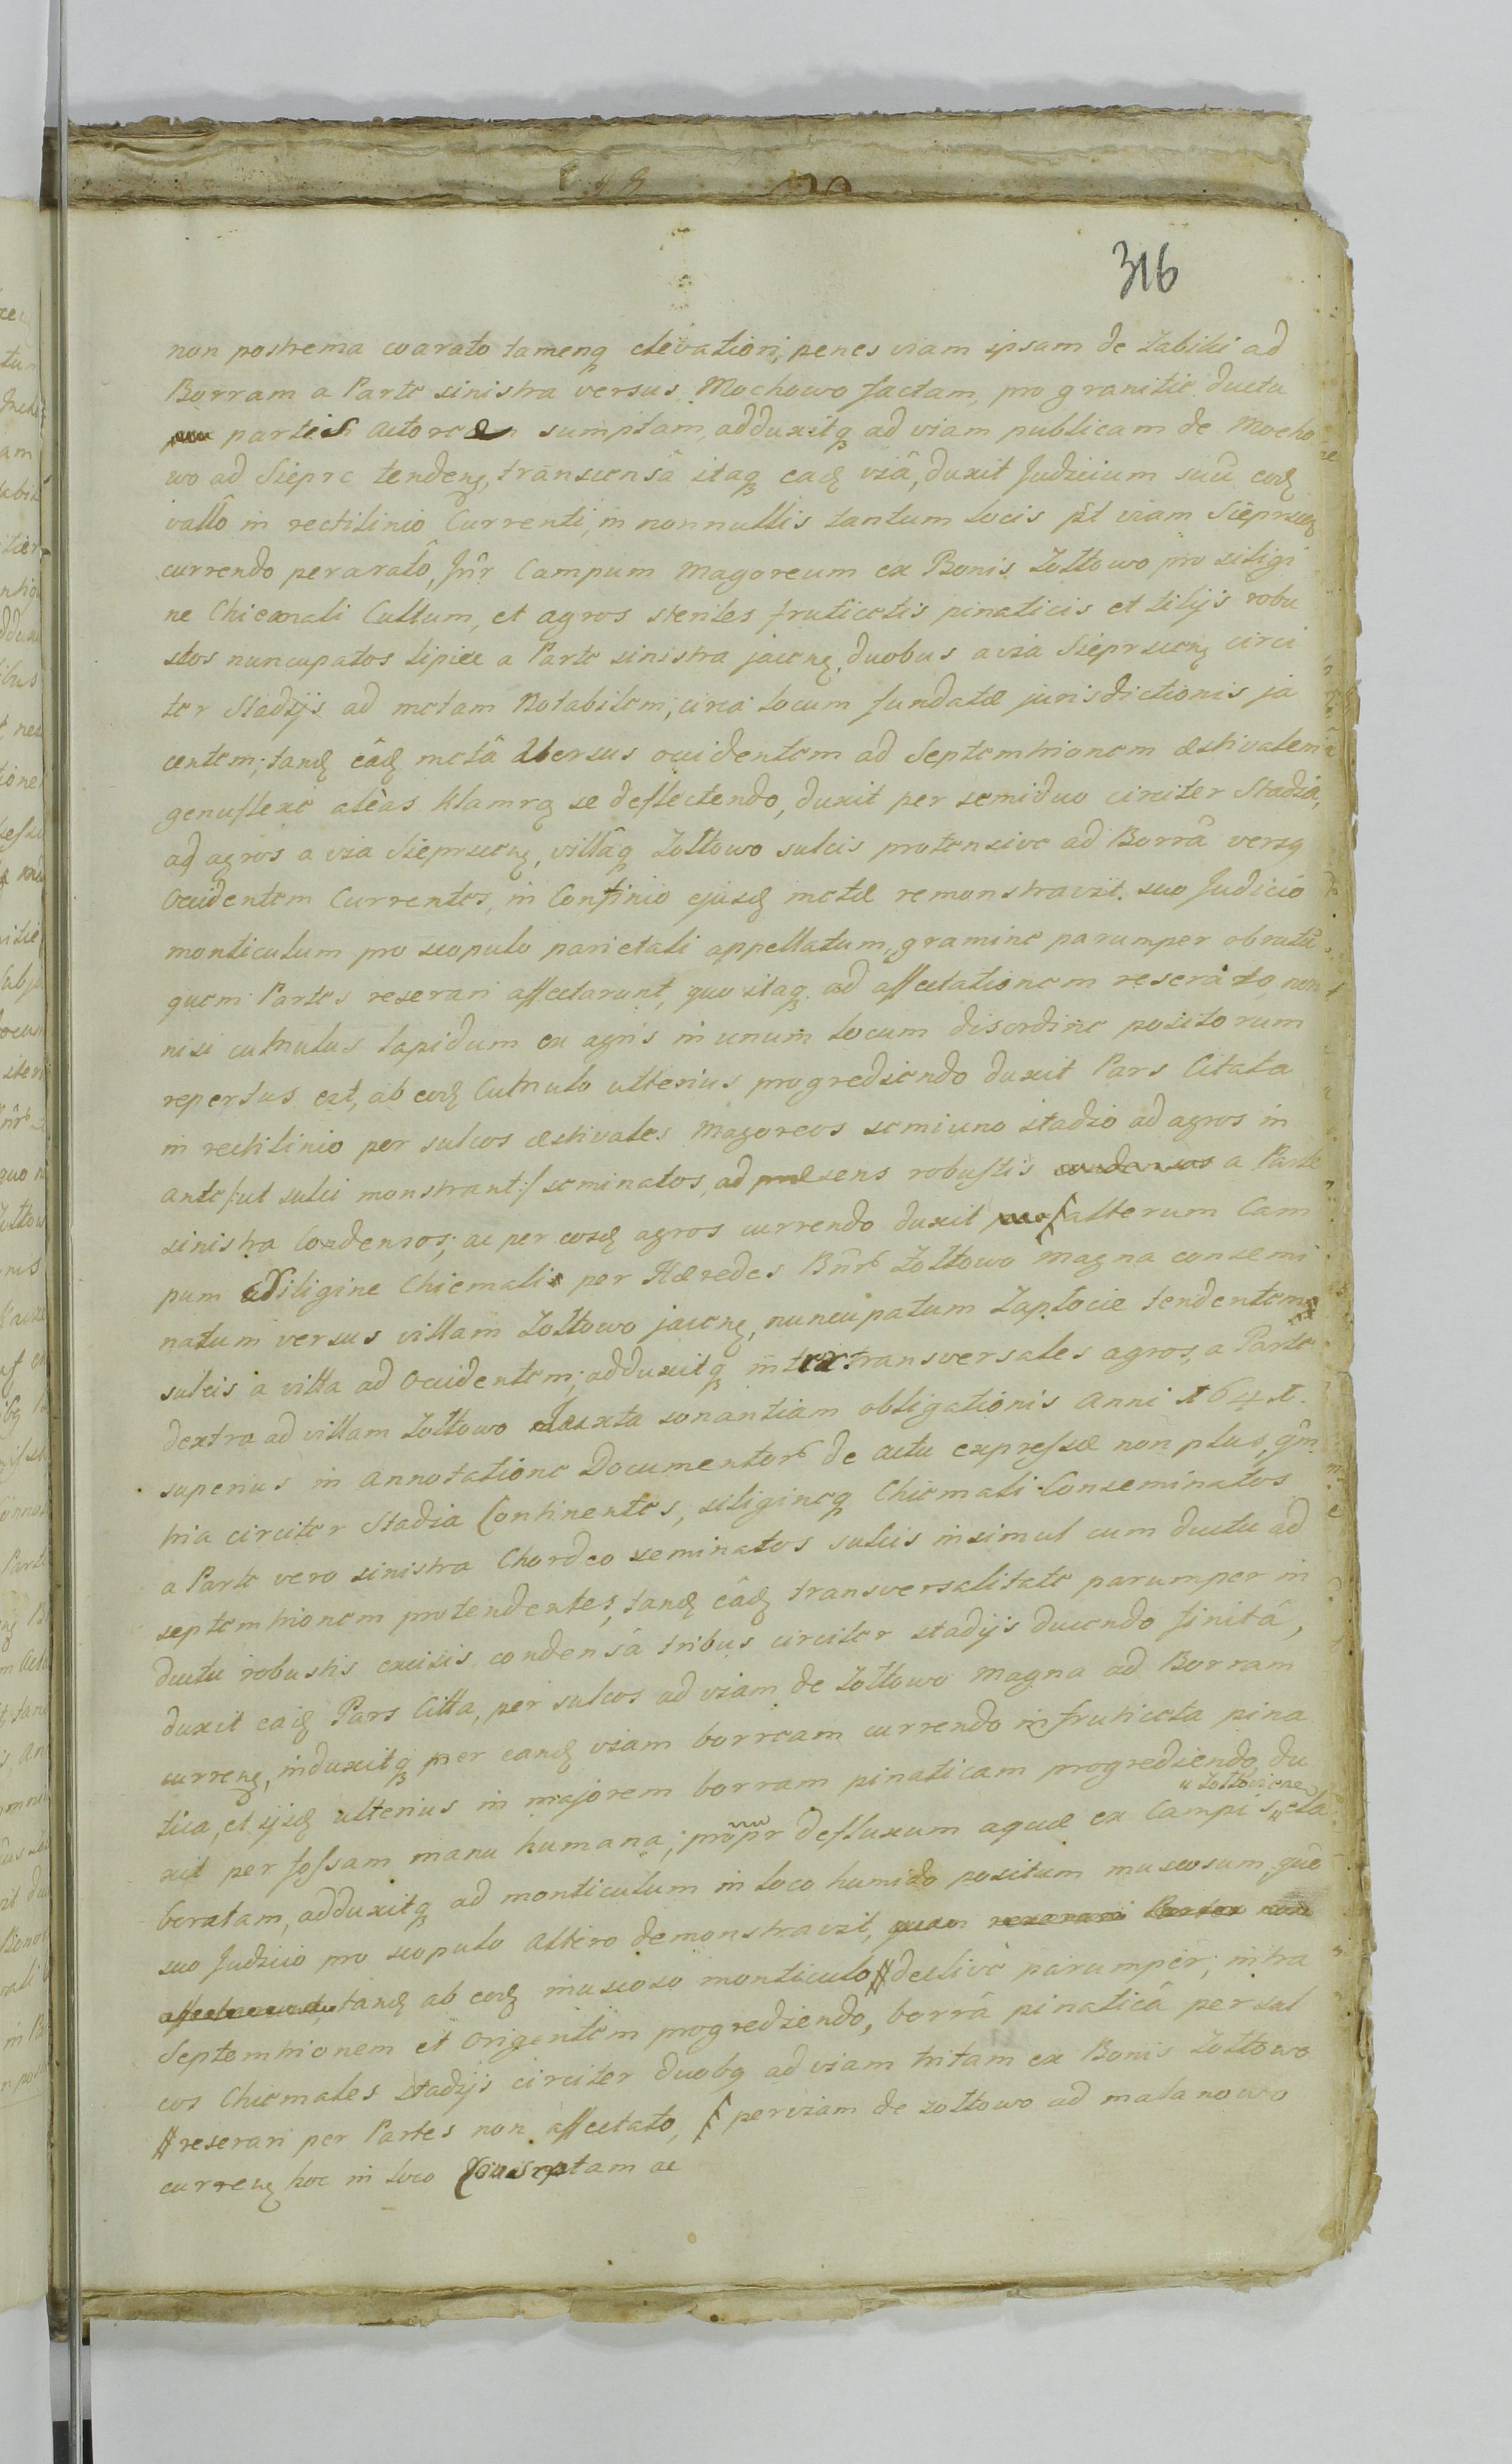 316
non postrema coarato tamenq elevatiori, penes viam ipsam de Żabiki ad
Borram a Parte sinistra versus Mochowo factam, pro granitie ductu
partis actoreæ sumptam, adduxitq ad viam publicam de Mocho
wo ad Sieprc tendeng, transcensâ itaq eaď viâ, duxit Judicium suũ eoď
vallô in rectilinio Currenti, in nonnullis tantum locis p̃t viam Sieprsceng
currendo peraratô, Jñr Campum Magoreum ex Bonis Żółtowo pro siligi
ne Chiemali Cultum, et agros steriles fruticetis pinaticis et tilijs robu
stos nuncupatos lipice a Parte sinistra jaceng, duobus a via Sieprsceng circi
ter Stadijs ad metam Notabilem, circa locum fundatæ jurisdictionis ja
centem; tanď eâď metâ versus occidentem ad Septemtrionem æstivalem
genuflexe aleas klamrą se deflectendo, duxit per semiduo circiter Stadia,
ad agros a via Sieprsceng, villâq Żołtowo sulcis protensive ad Borrâ versg
Occidentem Currentes, in Confinio ejusď metæ remonstravit suo Judicio
monticulum pro scopulo parietali appellatum, gramine parumper obrutũ
quem Partes reserari affectarunt, quo itaq ad affectationem reserato, non
nisi cumulus lapidum ex agris in unum locum disordine positorum
repertus est, ab eoď Cumulo ulterius progrediendo duxit Pars Citata
in rectilinio per sulcos æstivales Magoreos semiuno stadio ad agros in
ante /:ut sulci monstrant:/ seminatos, ad præsens robustis condensos a Parte
sinistra Condensos; ac per eosď agros currendo duxit alterum Cam
pum siligine Chiemali per Hæredes Bñr Żołtowo Magna consemi
natum versus villam Żołtowo jaceng, nuncupatum Zapłocie tendentem
sulcis a villa ad Occidentem; adduxitq inter transversales agros, a Parte
dextra ad villam Żołtowo Juxta sonantiam obligationis Anni 1641.
superius in Annotatione Documentor de actu expressæ non plus, qm̃
tria circiter Stadia Continentes, siligineq Chiemali Conseminatos
a Parte vero sinistra Chordeo seminatos sulcis insimul cum ductu ad
septemtrionem protendentes, tanď eâď transversalitate parumper in
ductu robustis excisis condensâ tribus circiter stadijs ducendo finitâ,
duxit eaď Pars Citta, per sulcos ad viam de Żołtowo Magna ad Borram
curreng, induxitq per eanď viam borream currendo in fruticeta pina
tica, et ijsď ulterius in majorem borram pinaticam progrediendo, du
xit per fossam manu humana, propr defluxum aquæ ex Campis „Żołtoviens„ ela
boratam, adduxitq ad monticulum in loco humido positum muscosum, quẽ
suo Judicio pro scopulo altero demonstravit, quem reserari Partes non
affectarunt, tanď ab eoď muscoso monticulo # declive parumper, intra
Septemtrionem et Origentem progrediendo, borrâ pinaticâ per sul
cos Chiemales stadijs circiter duobg ad viam tritam ex Bonis Żołtowo
# reserari per Partes non affectato, per viam de Żołtowo ad Malanowo
curreng hoc in loco Conscriptam ac